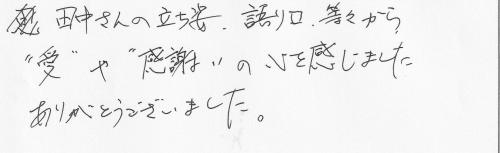 田中さんの立ち姿、語り口、等々から
"愛"や"感謝"の心を感じました
ありがとうございました。